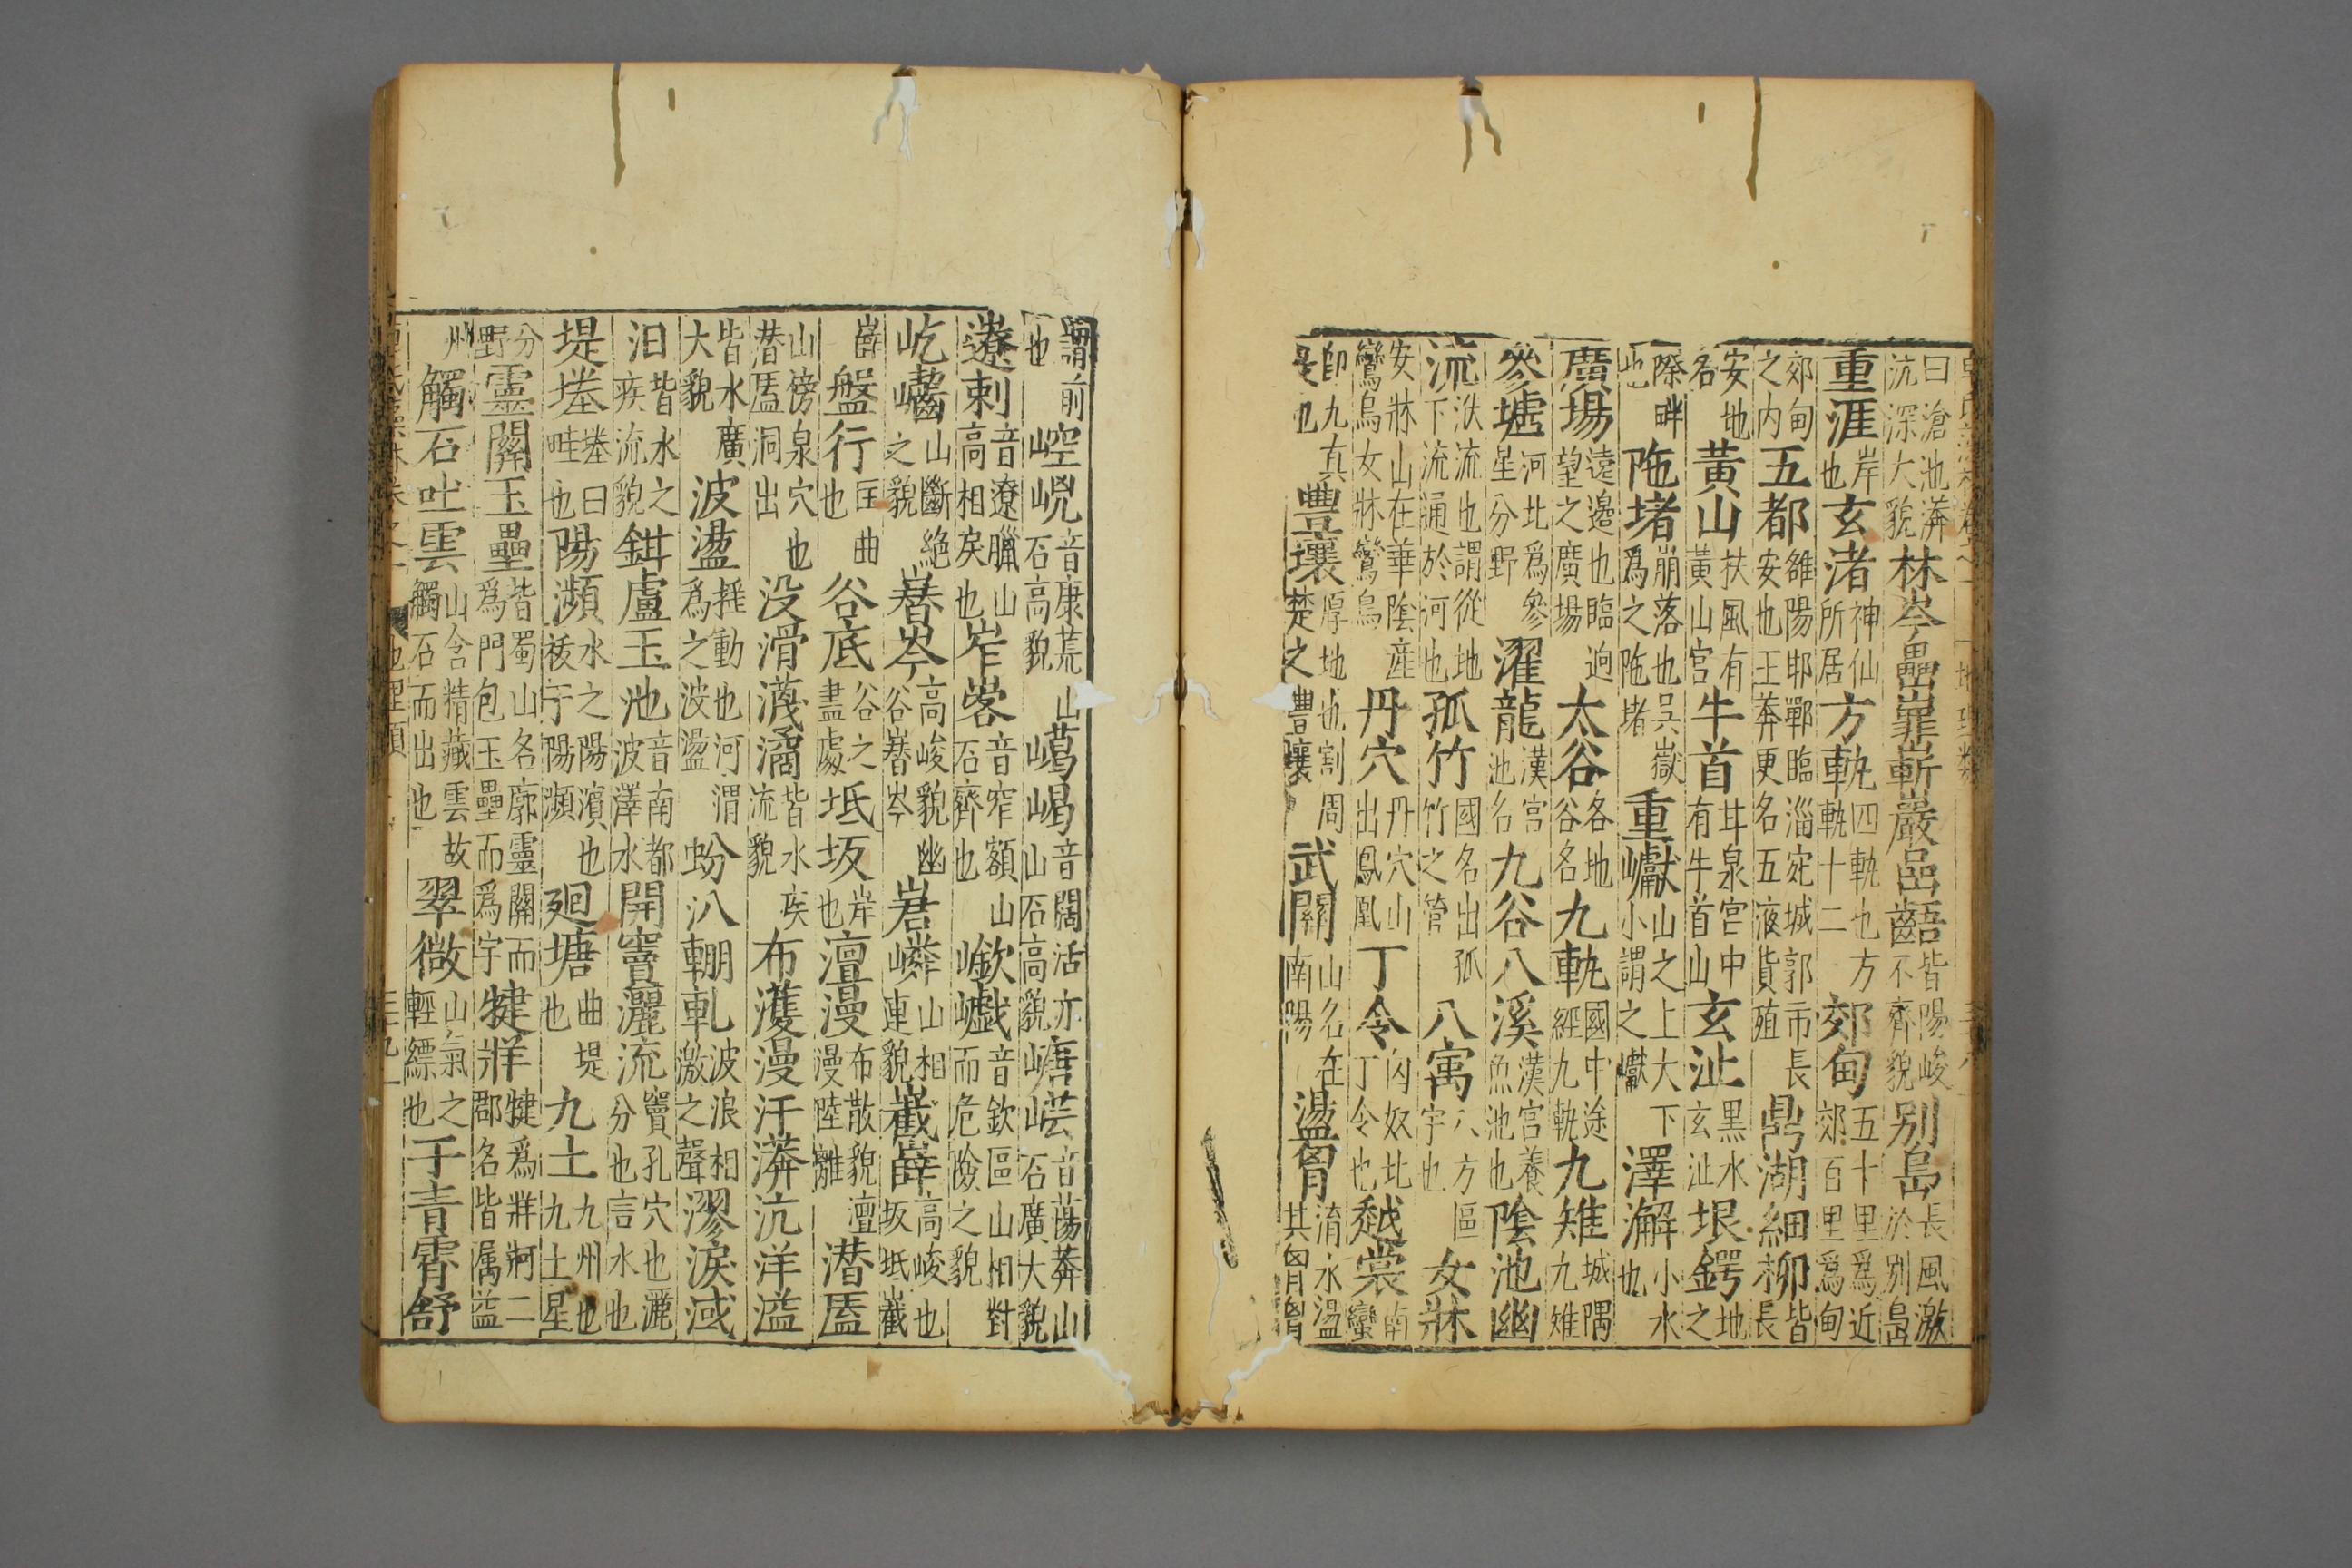 曰滄池漭沆深大貌林岑嵒崔嶄巖嵒齬皆陽峻不齊貌別島長風激於別島
重涯岸也玄渚神仙所居方軌四軌也方軌十二郊甸五十里爲近郊百里爲甸
郊甸之内五都雒陽邯鄲臨淄宛城郭市長安也王莽更名五液貨殖鼎湖細柳皆長
安地名黃山扶風有黃山宮牛首甘泉宮中有牛首山玄沚黑水玄沚垠鍔地之
際畔也陁堵崩落也吳嶽爲之陁堵重巘山之上大下小謂之巘澤澥小水也
廣場遠邊也臨迥望之廣場太谷各地谷名九軌國中途經九軌九雉城隅九雉
參墟河北爲參星分野濯龍漢宮池名九谷八溪漢宮養魚池也陰池幽
流泆流也謂從地下流通於河也孤竹國名出孤竹之管八㝢八方區宇也女牀
安牀山在華陰產鸞鳥女牀鸞鳥丹穴丹穴山出鳳凰丁令匈奴北丁令也越裳南蠻
即九真是也豐壤厚地也割周楚之豐壤武關山名在南陽盪胷淯水盪其胷
謂前也崆㟅音康荒山石高貌嶱嵑音闊活亦山石高貌嵣㟐音蕩莽山石廣大貌
嶚剌音遼臘山高相戾也岝㟯音窄額山石齊也嶔巇音欽區山相對而危險之貌
屹㘈山斷絶之貌嶜岑高峻貌幽谷嶜岑岩嶙山相連貌巀嶭高峻也坂坻巀
嶭盤行匡曲也谷底谷之盡處坻坂岸也澶漫布散貌澶漫陸離潜㕎
山傍泉穴也潜㕎洞出没滑瀎潏皆水疾流貌布濩漫汗漭沆洋溢
皆水廣大貌波盪揺動也河渭爲之波盪汾汃軯軋波浪相激之聲漻淚淢
汩皆水之疾流貌鉗盧玉池音南都波澤水開竇灑流竇孔穴也灑分也言水也
堤塍塍曰畦也陽瀕水之陽濱也祓于陽瀕廻塘曲堤也九土九州也九土星
分野靈關玉壘皆蜀山名廓靈關而爲門包玉壘而爲宇犍牂犍爲牂牁二郡名皆属益
州觸石吐雲山含精藏雲故觸石而出也翠微山氣之輕縹也干青霄舒